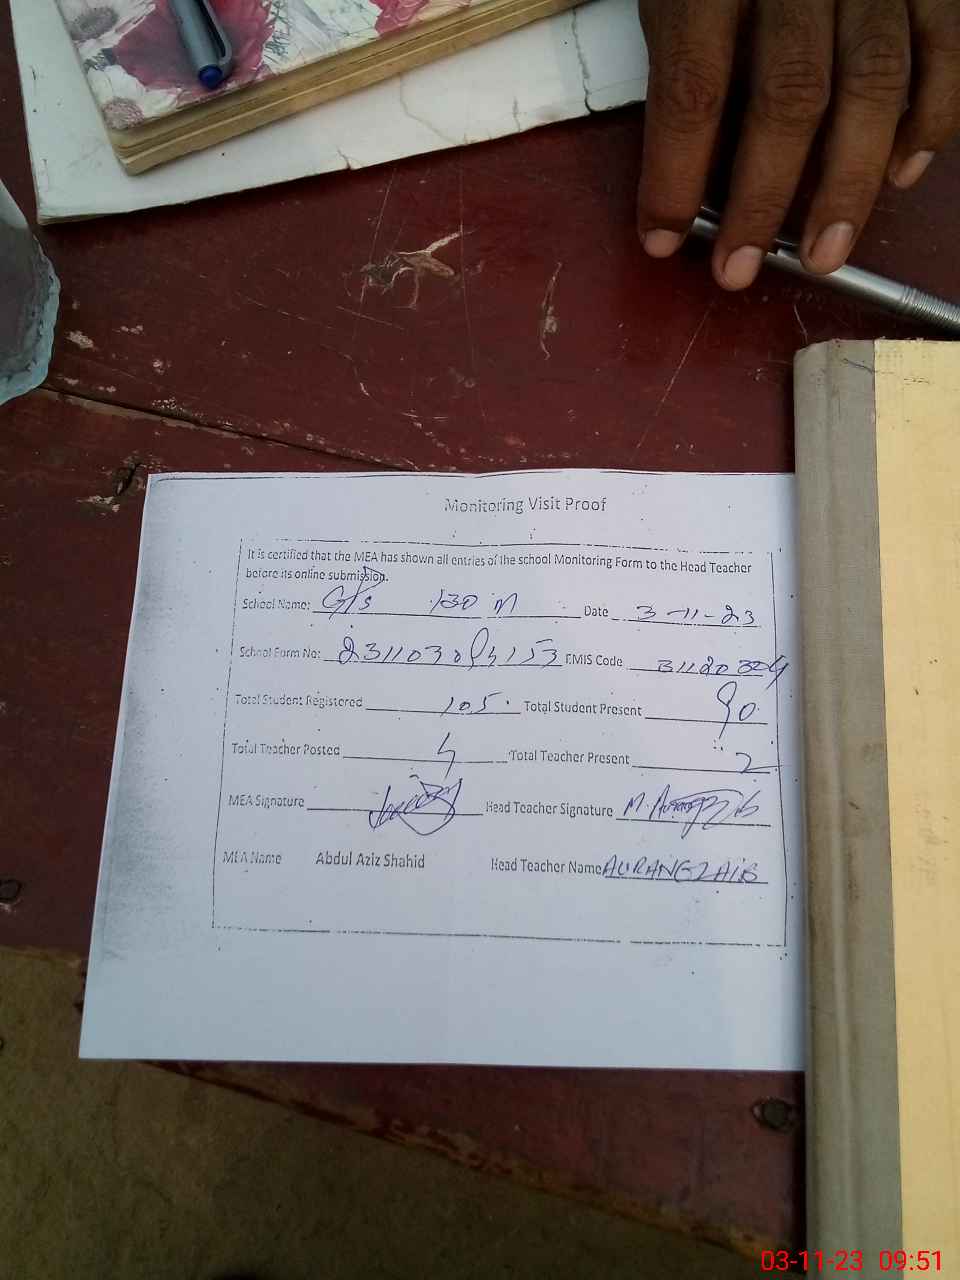 Monitoring Visit Proof
It is certified that the MEA has shown all entries of the school Monitoring Form to the Head Teacher
before its online submission.
School Name: G/s 130 M Date 3-11-23
School Form No: EMIS Code
Total Student Registered 105 Total Student Present 90
Total Teacher Posted 4 Total Teacher Present 2
MEA Signature Head Teacher Signature
MEA Name Abdul Aziz Shahid Head Teacher Name AURANGZAIB
03-11-23 09:51